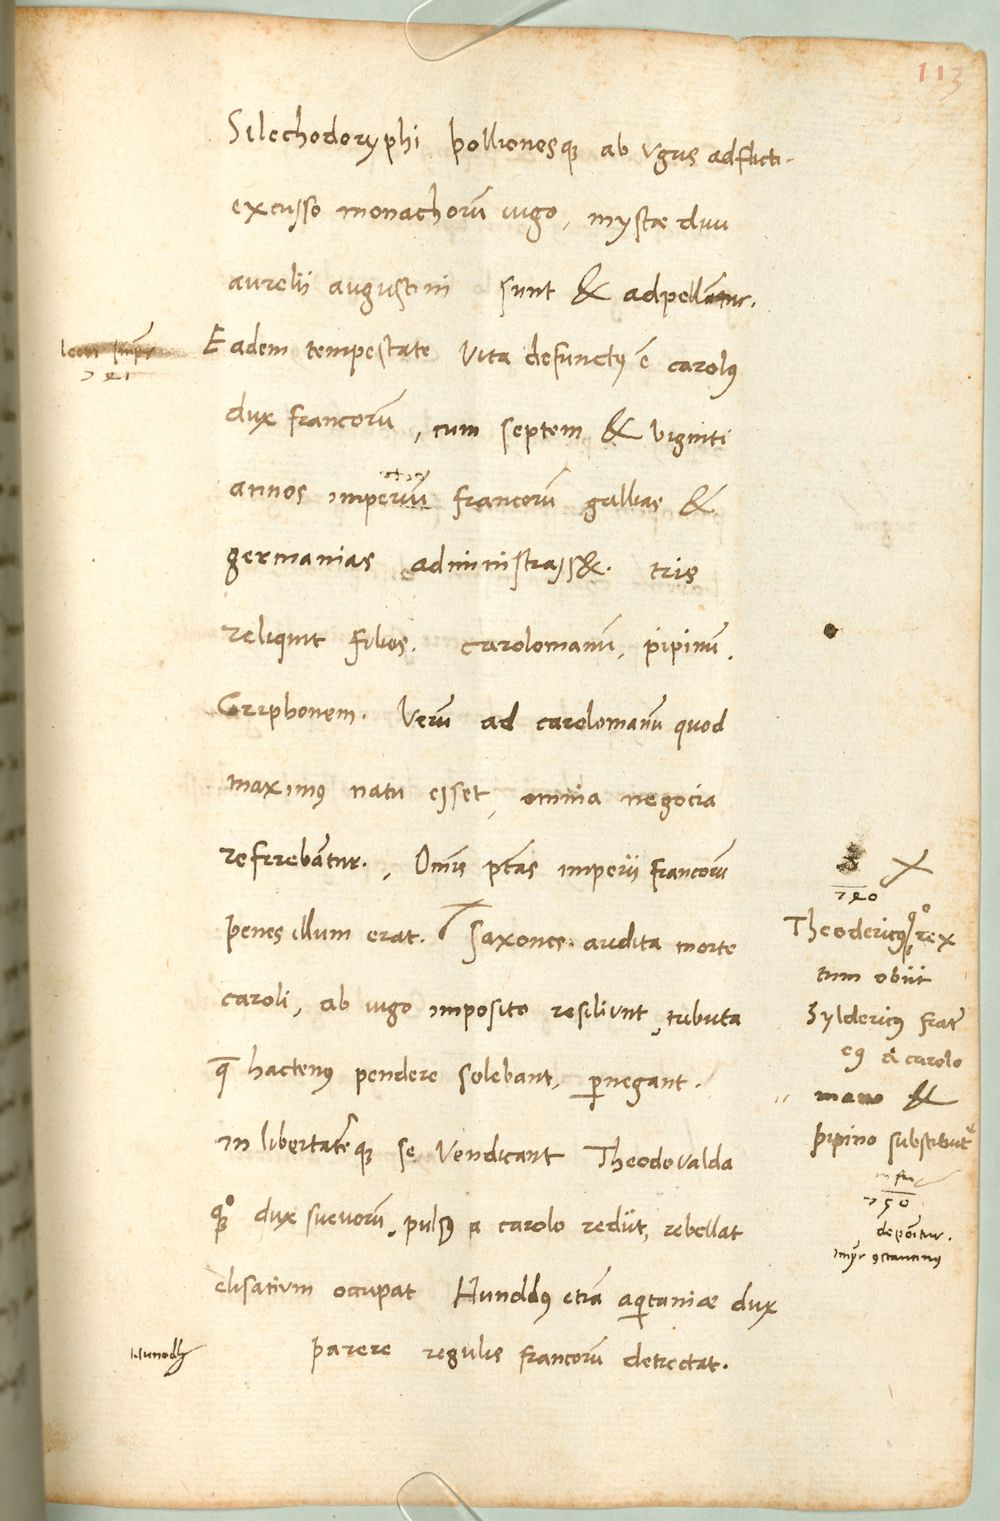 113
Silechodoryphi polliones⁊ ab Vgris adflicti.
excusso monachorū iugo, mystæ diui
aurelii augustini sunt & adpellātur.
Eadem tempestate Vita defunctꝰ ē carolꝰ
dux francorū, cum septem & viginti
annos imperiū francorū gallias &
germanias administrass&. tris
reliquit filios. carolomanū, pipinū,
Griphonem. Verū ad carolomanū quod
maximꝰ natu esset, omnia negocia
referrebātur. Omīs ptās imperii francorū
penes illum erat. Saxones audita morte
caroli, ab iugo imposito resiliunt, tributa
q̄ hactenꝰ pendere solebant, ꝑnegant.
in libertatēqꝫ se Vendicant Theodovalda
qꝫ° dux suevorū, pulsꝰ a carolo rediit, rebellat
elisatium occupat Hunddꝰ etiā aqitaniæ dux
parere regulis francorū detrectat.
741
Hunodꝰ
740
Theodericꝰ qꝫ° rex
tum obiit
Hyldericꝰ frat̄
eꝰ a carolo
mano &
pipino substituit̄
750
deponitur.
impr ꝯstantinus